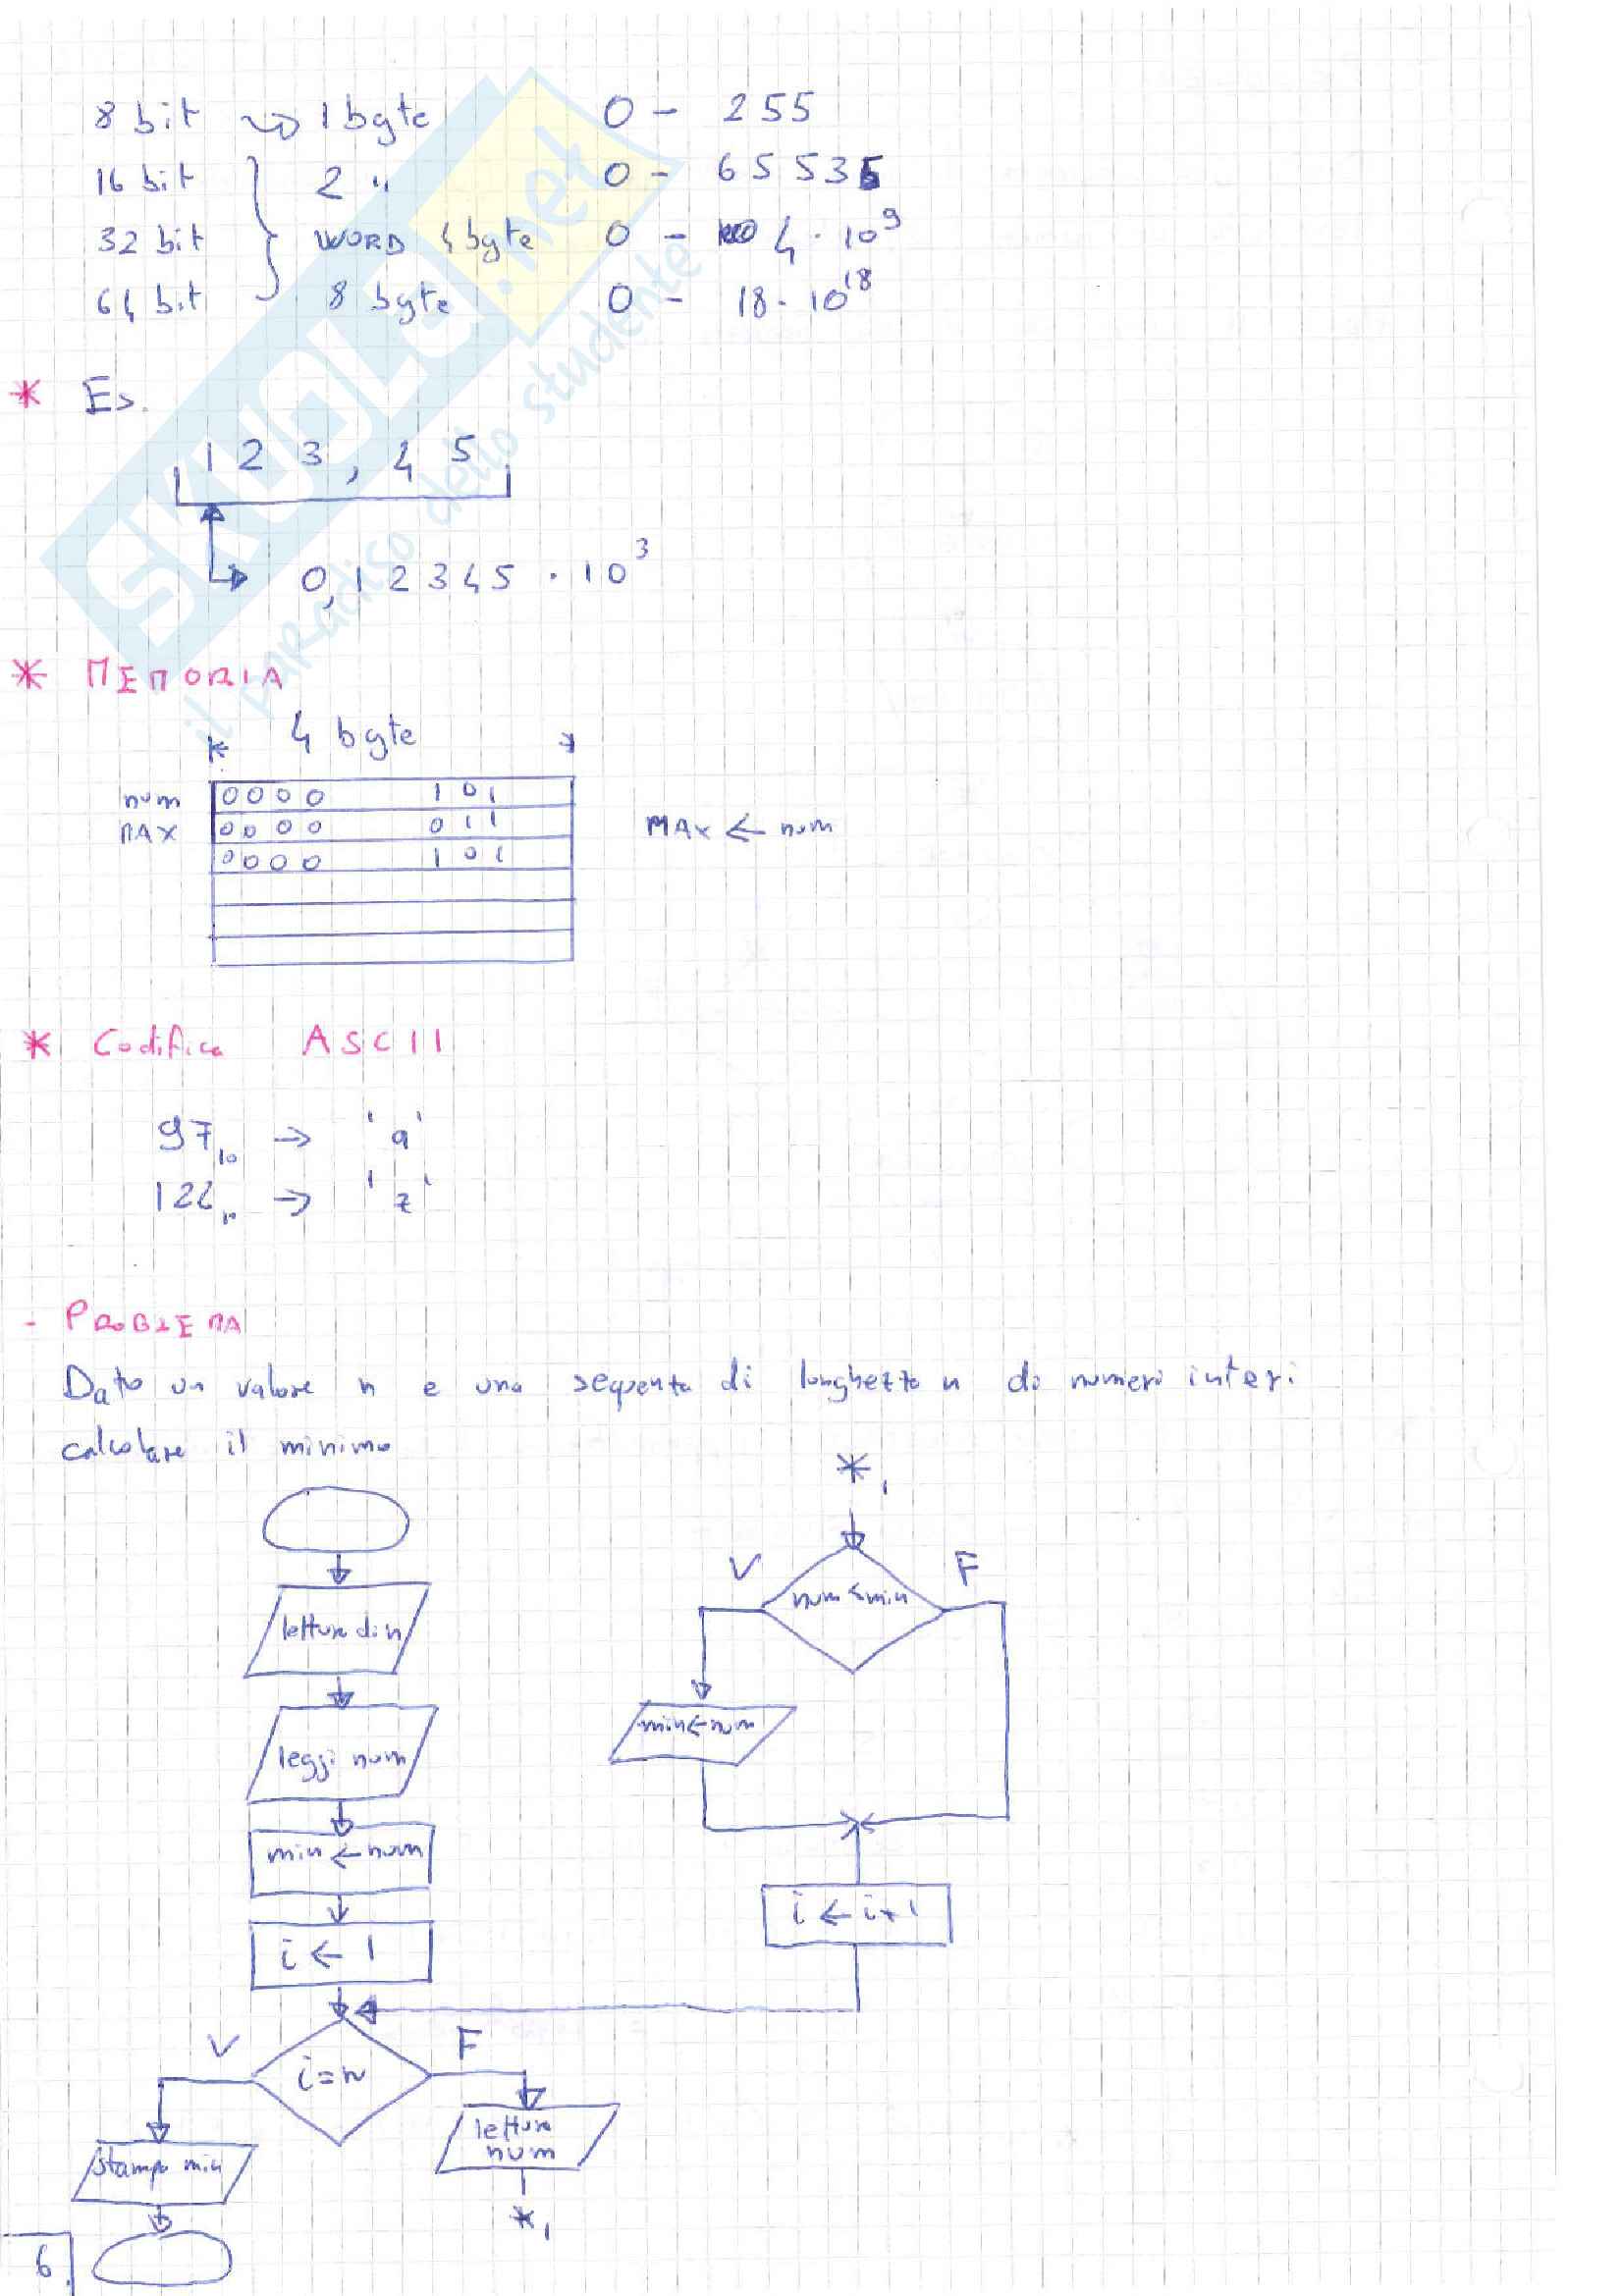 8 bit → 1 byte 0 - 255
16 bit 2 " 0 - 65535
32 bit WORD 4 byte 0 - 4 · 10⁹
64 bit 8 byte 0 - 18 · 10¹⁸
* Es.
123,45
0,12345 · 10³
* MEMORIA
4 byte
num 0000 101
MAX 0000 011 MAX ← num
0000 101
* Codifica ASCII
97₁₀ → 'a'
122₁₀ → 'z'
- PROBLEMA
Dato un valore n e una sequenza di lunghezza n di numeri interi
calcolare il minimo
lettura di n
leggi num
min ← num
i ← 1
i = n
V
F
stampo min
lettura
num
*₁
*₁
num < min
V
F
min ← num
i ← i+1
6
SKUOLA.net
il paradiso dello studente